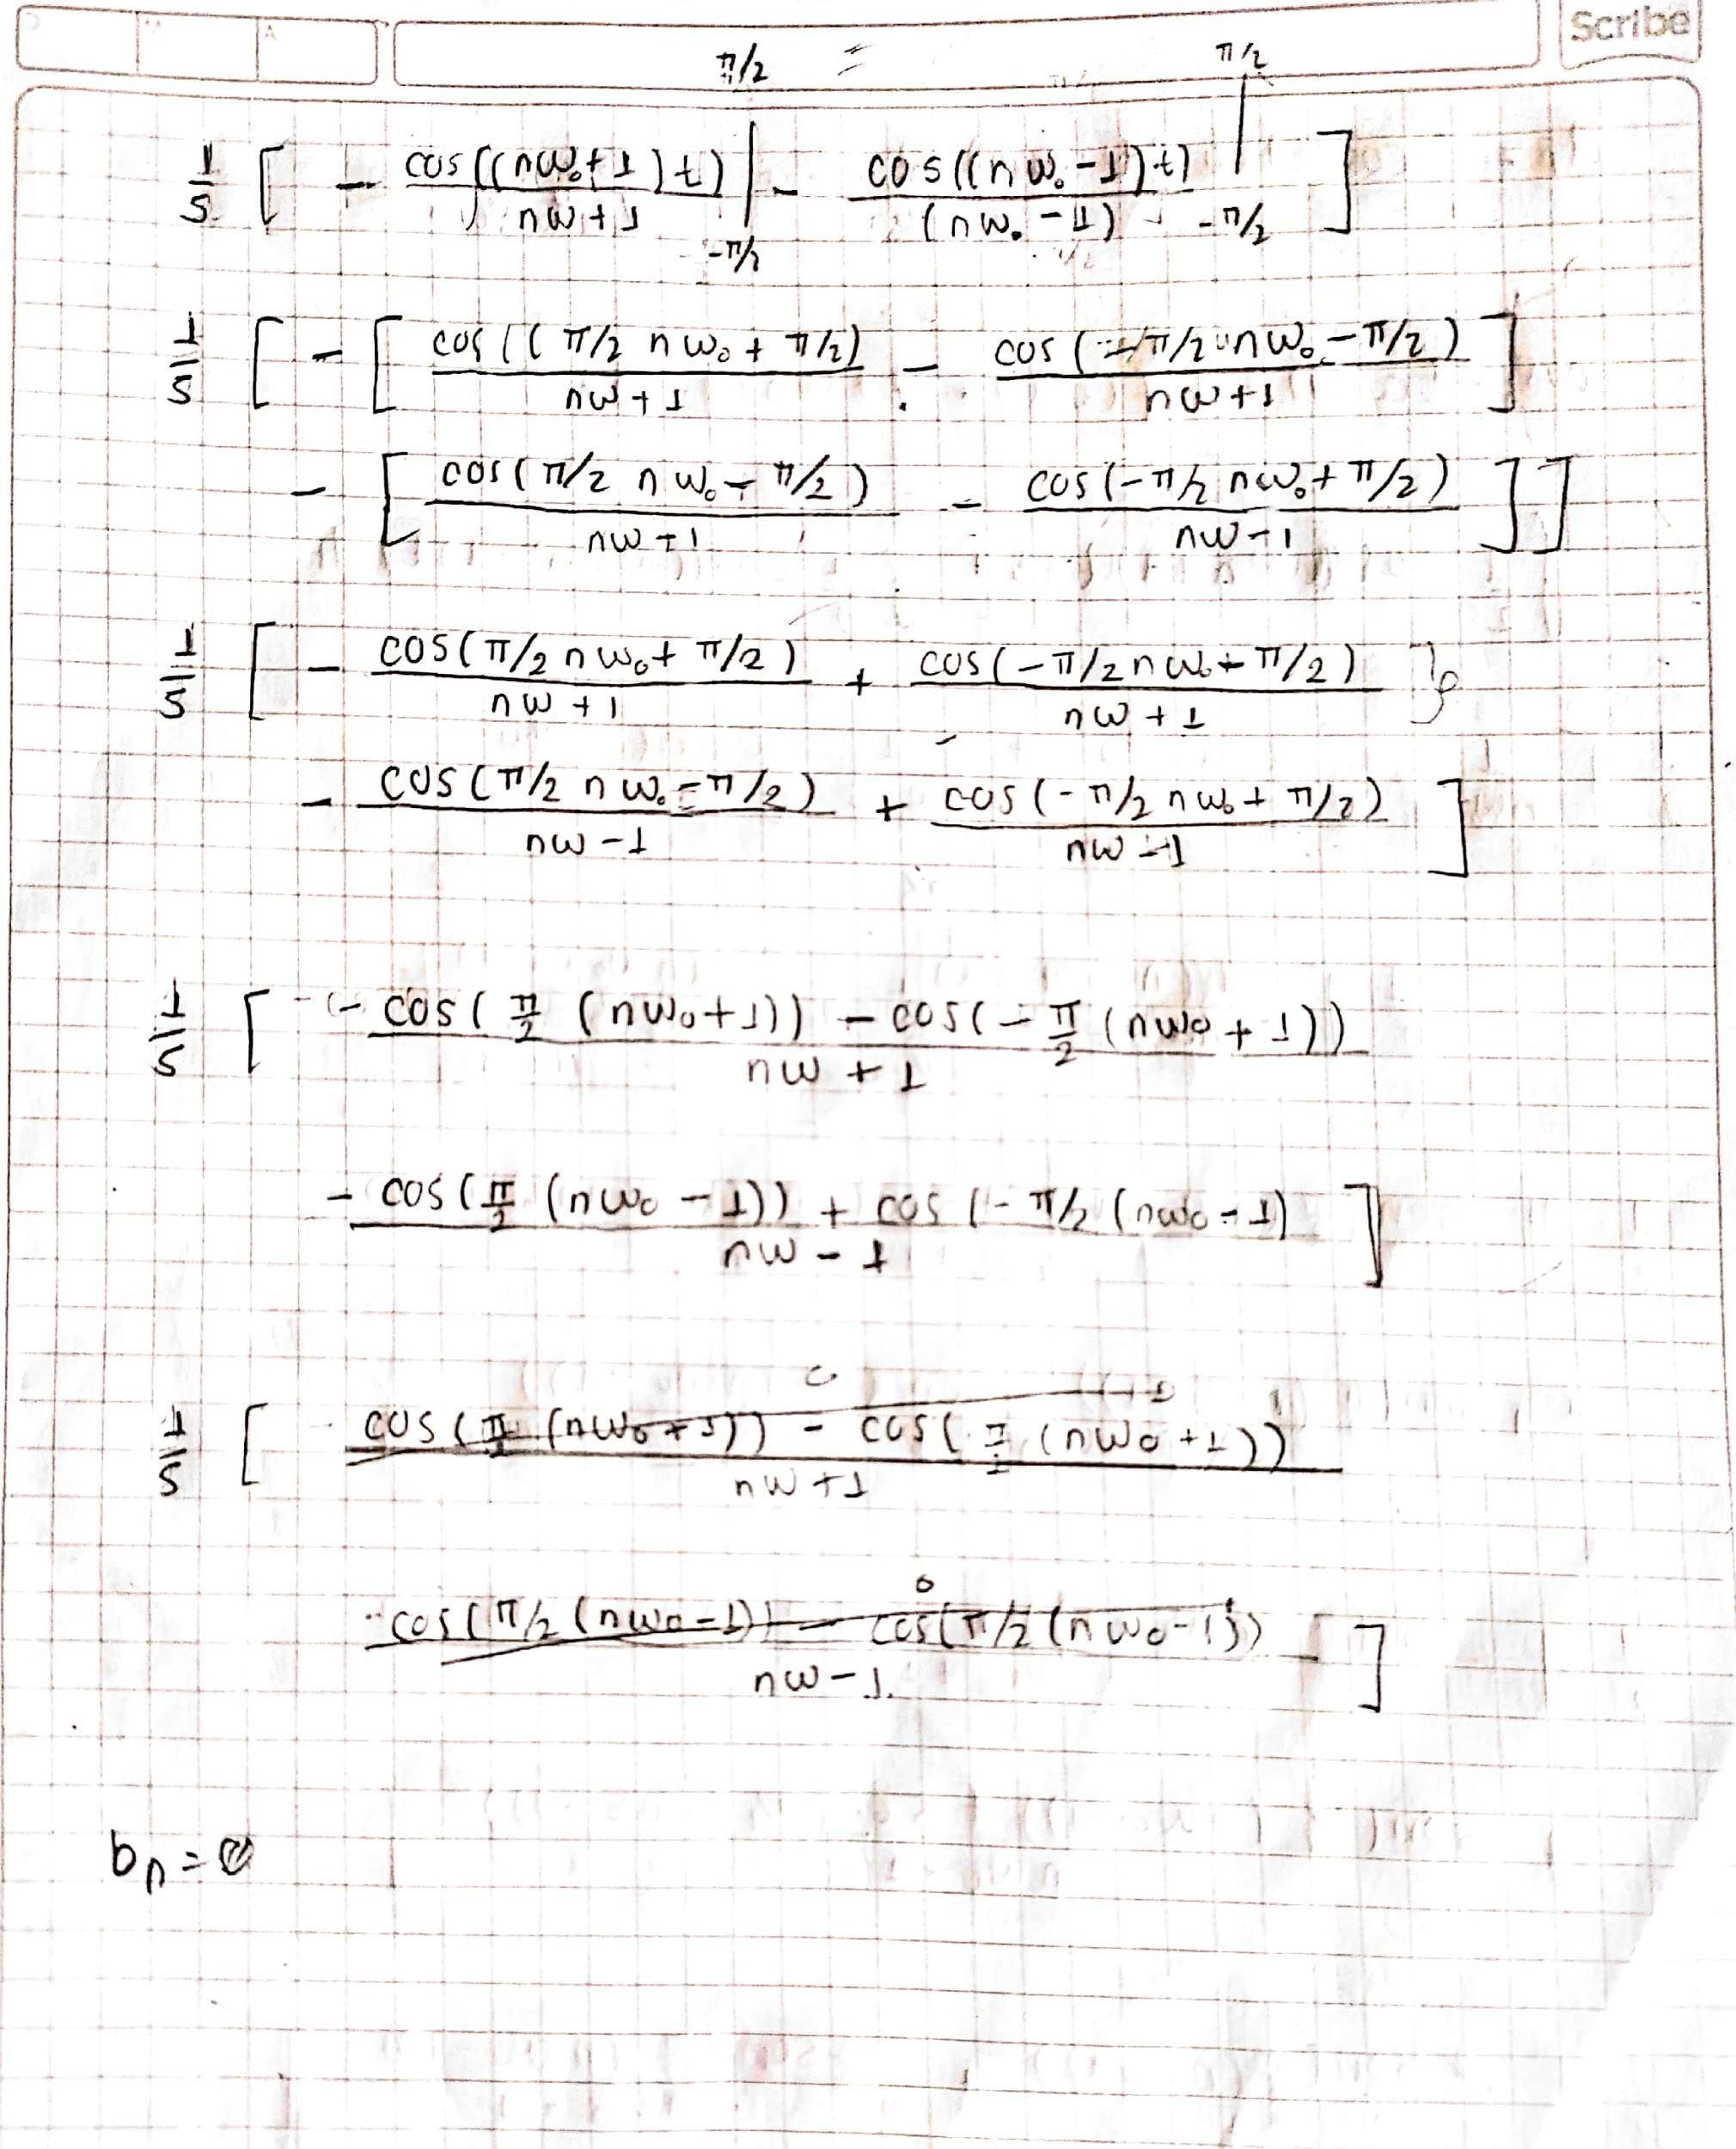 Scribe
π/2 = π/2
1/5 [ - cos((nω₀+1)t)/(nω+1) | - cos((nω₀-1)t)/(nω₀-1) | ]
-π/2 -π/2
1/5 [ - [ cos((π/2 nω₀ + π/2)/(nω+1) - cos(-π/2 nω₀ - π/2)/(nω+1) ]
- [ cos(π/2 nω₀ - π/2)/(nω-1) - cos(-π/2 nω₀ + π/2)/(nω-1) ] ]
1/5 [ - cos(π/2 nω₀ + π/2)/(nω+1) + cos(-π/2 nω₀ - π/2)/(nω+1)
- cos(π/2 nω₀ - π/2)/(nω-1) + cos(-π/2 nω₀ + π/2)/(nω-1) ]
1/5 [ - cos(π/2 (nω₀+1)) - cos(-π/2 (nω₀+1))/(nω+1)
- cos(π/2 (nω₀-1)) + cos(-π/2 (nω₀-1)/(nω-1) ]
1/5 [ cos(π/2 (nω₀+1)) - cos(π/2 (nω₀+1))/(nω+1)
0
-cos(π/2 (nω₀-1)) - cos(π/2 (nω₀-1))/(nω-1) ]
bn = 0